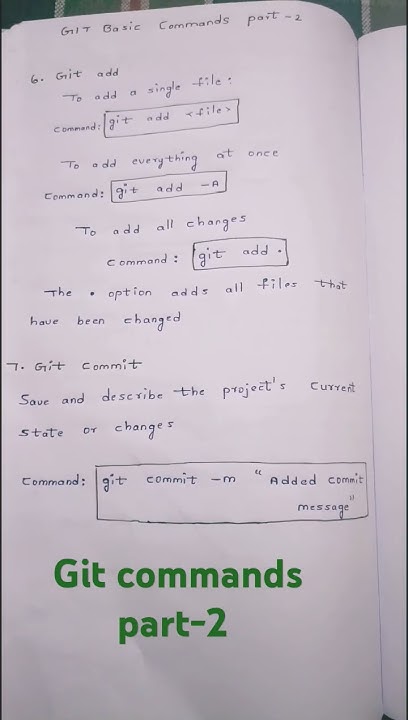 GIT Basic Commands part-2
6. Git add
To add a single file:
Command: git add <file>
To add everything at once
Command: git add -A
To add all changes
Command: git add .
The . option adds all files that
have been changed
7. Git Commit
Save and describe the project's Current
state or changes
Command: git commit -m "Added commit
message"
Git commands
part-2